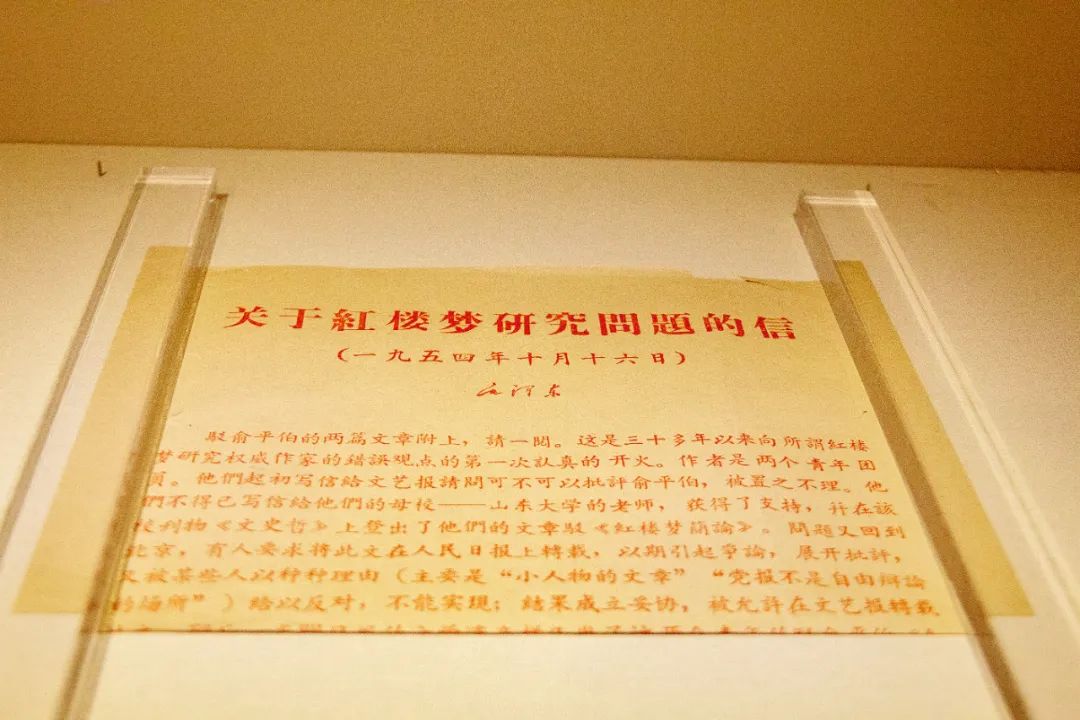 关于紅楼梦研究問題的信
（一九五四年十月十六日）
毛泽东
駁俞平伯的两篇文章附上，請一閱。这是三十多年以来向所謂紅楼
梦研究权威作家的錯誤观点的第一次認真的开火。作者是两个青年团
員。他們起初写信給文艺报請問可不可以批評俞平伯，被置之不理。他
們不得已写信給他們的母校——山东大学的老师，获得了支持，并在該
校刊物《文史哲》上登出了他們的文章駁《紅楼梦簡論》。問題又回到
北京，有人要求将此文在人民日报上轉載，以期引起爭論，展开批評，
又被某些人以种种理由（主要是“小人物的文章”“党报不是自由辯論
的場所”）給以反对，不能实現；結果成立妥协，被允許在文艺报轉載